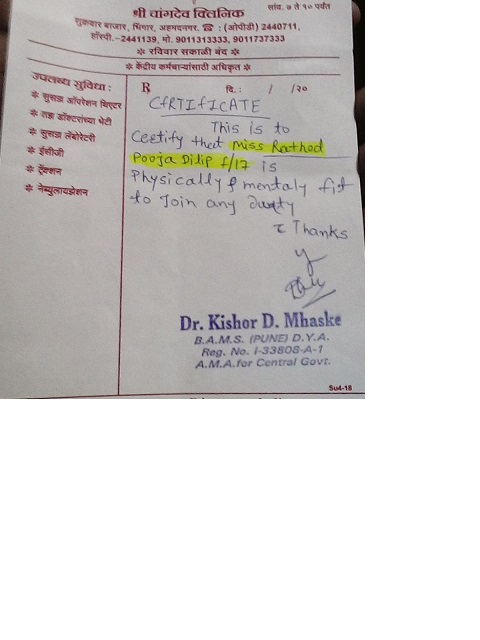 सांय. ७ ते १० पर्यंत
श्री चांगदेव क्लिनिक
शुक्रवार बाजार, भिंगार, अहमदनगर. ☎ : (ओपीडी) 2440711,
हॉस्पी.-2441139, मो. 9011313333, 9011737333
❉ रविवार सकाळी बंद ❉
❉ केंद्रीय कर्मचाऱ्यांसाठी अधिकृत ❉
उपलब्ध सुविधा :
❉ सुसज्ज ऑपरेशन थिएटर
❉ तज्ञ डॉक्टरांच्या भेटी
❉ सुसज्ज लॅबोरेटरी
❉ ईसीजी
❉ ट्रॅक्शन
❉ नेब्युलायझेशन
℞ दि. : / /२०
CERTIFICATE
This is to
Ceetify that Miss Rathod
Pooja Dilip f/17 is
Physically & mentaly fit
to Join any
Thanks
Dr. Kishor D. Mhaske
B.A.M.S. (PUNE) D.Y.A.
Reg. No. I-33808-A-1
A.M.A.for Central Govt.
Su4-18